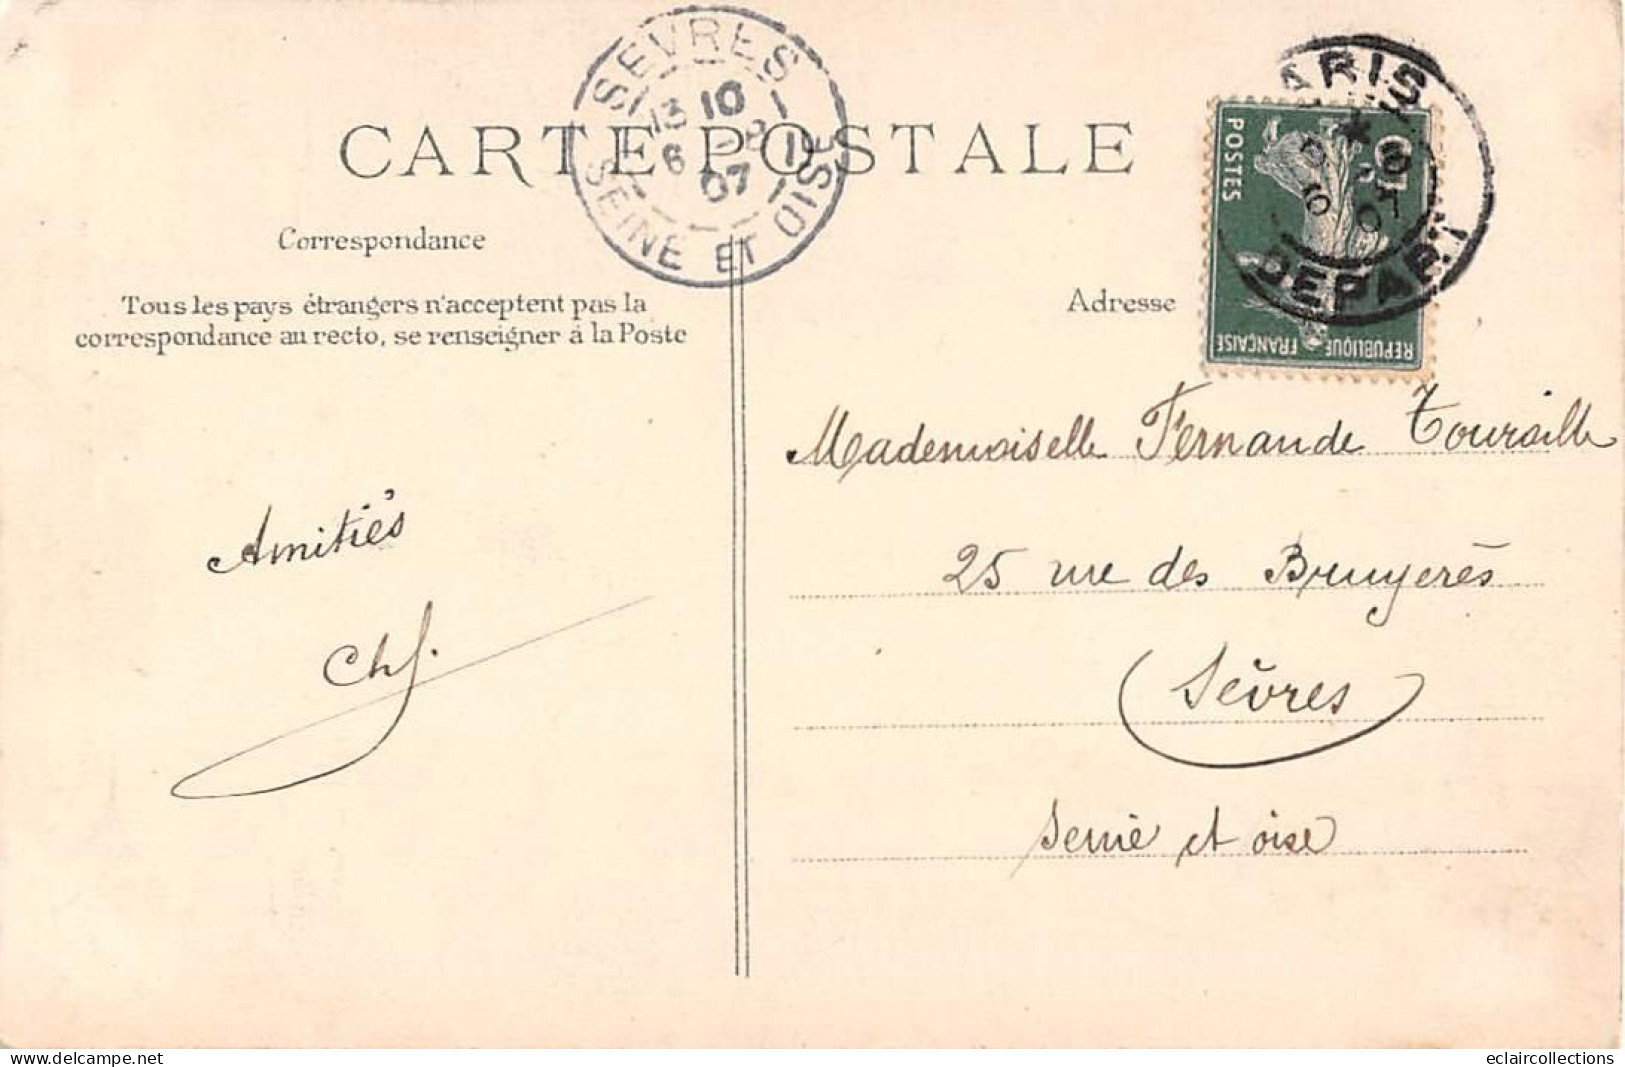 SEVRES
13 10
6 - 8
07
SEINE ET OISE
CARTE POSTALE
PARIS
DEPART
POSTES
5
REPUBLIQUE FRANÇAISE
Correspondance
Tous les pays étrangers n'acceptent pas la
correspondance au recto, se renseigner à la Poste
Adresse
Mademoiselle Fernande Touraille
25 rue des Bruyerès
Amitiés
Chf.
(Sèvres)
Seine et oise
eclaircollections